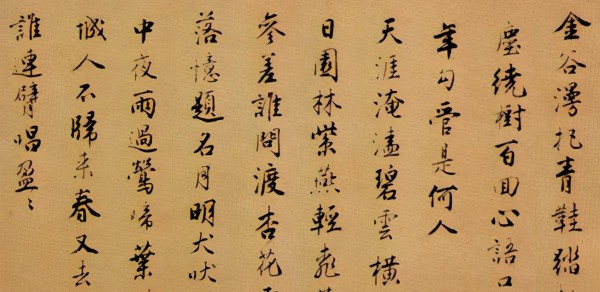 金谷漫把青鞋踏
塵繞樹百回心語口
年勾管是何人
天涯淹溘碧雲橫
日園林紫燕輕
參差誰問渡杏花
落憶題名月明犬吠
中夜雨過鶯啼葉
城人不歸來春又去
誰連臂唱盈〻